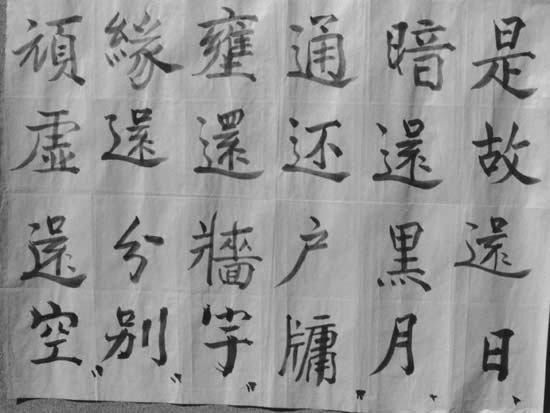 是故還日、
暗還黑月、
通还户牖〃
壅還牆宇〃
緣還分別〃
頑虛還空〃